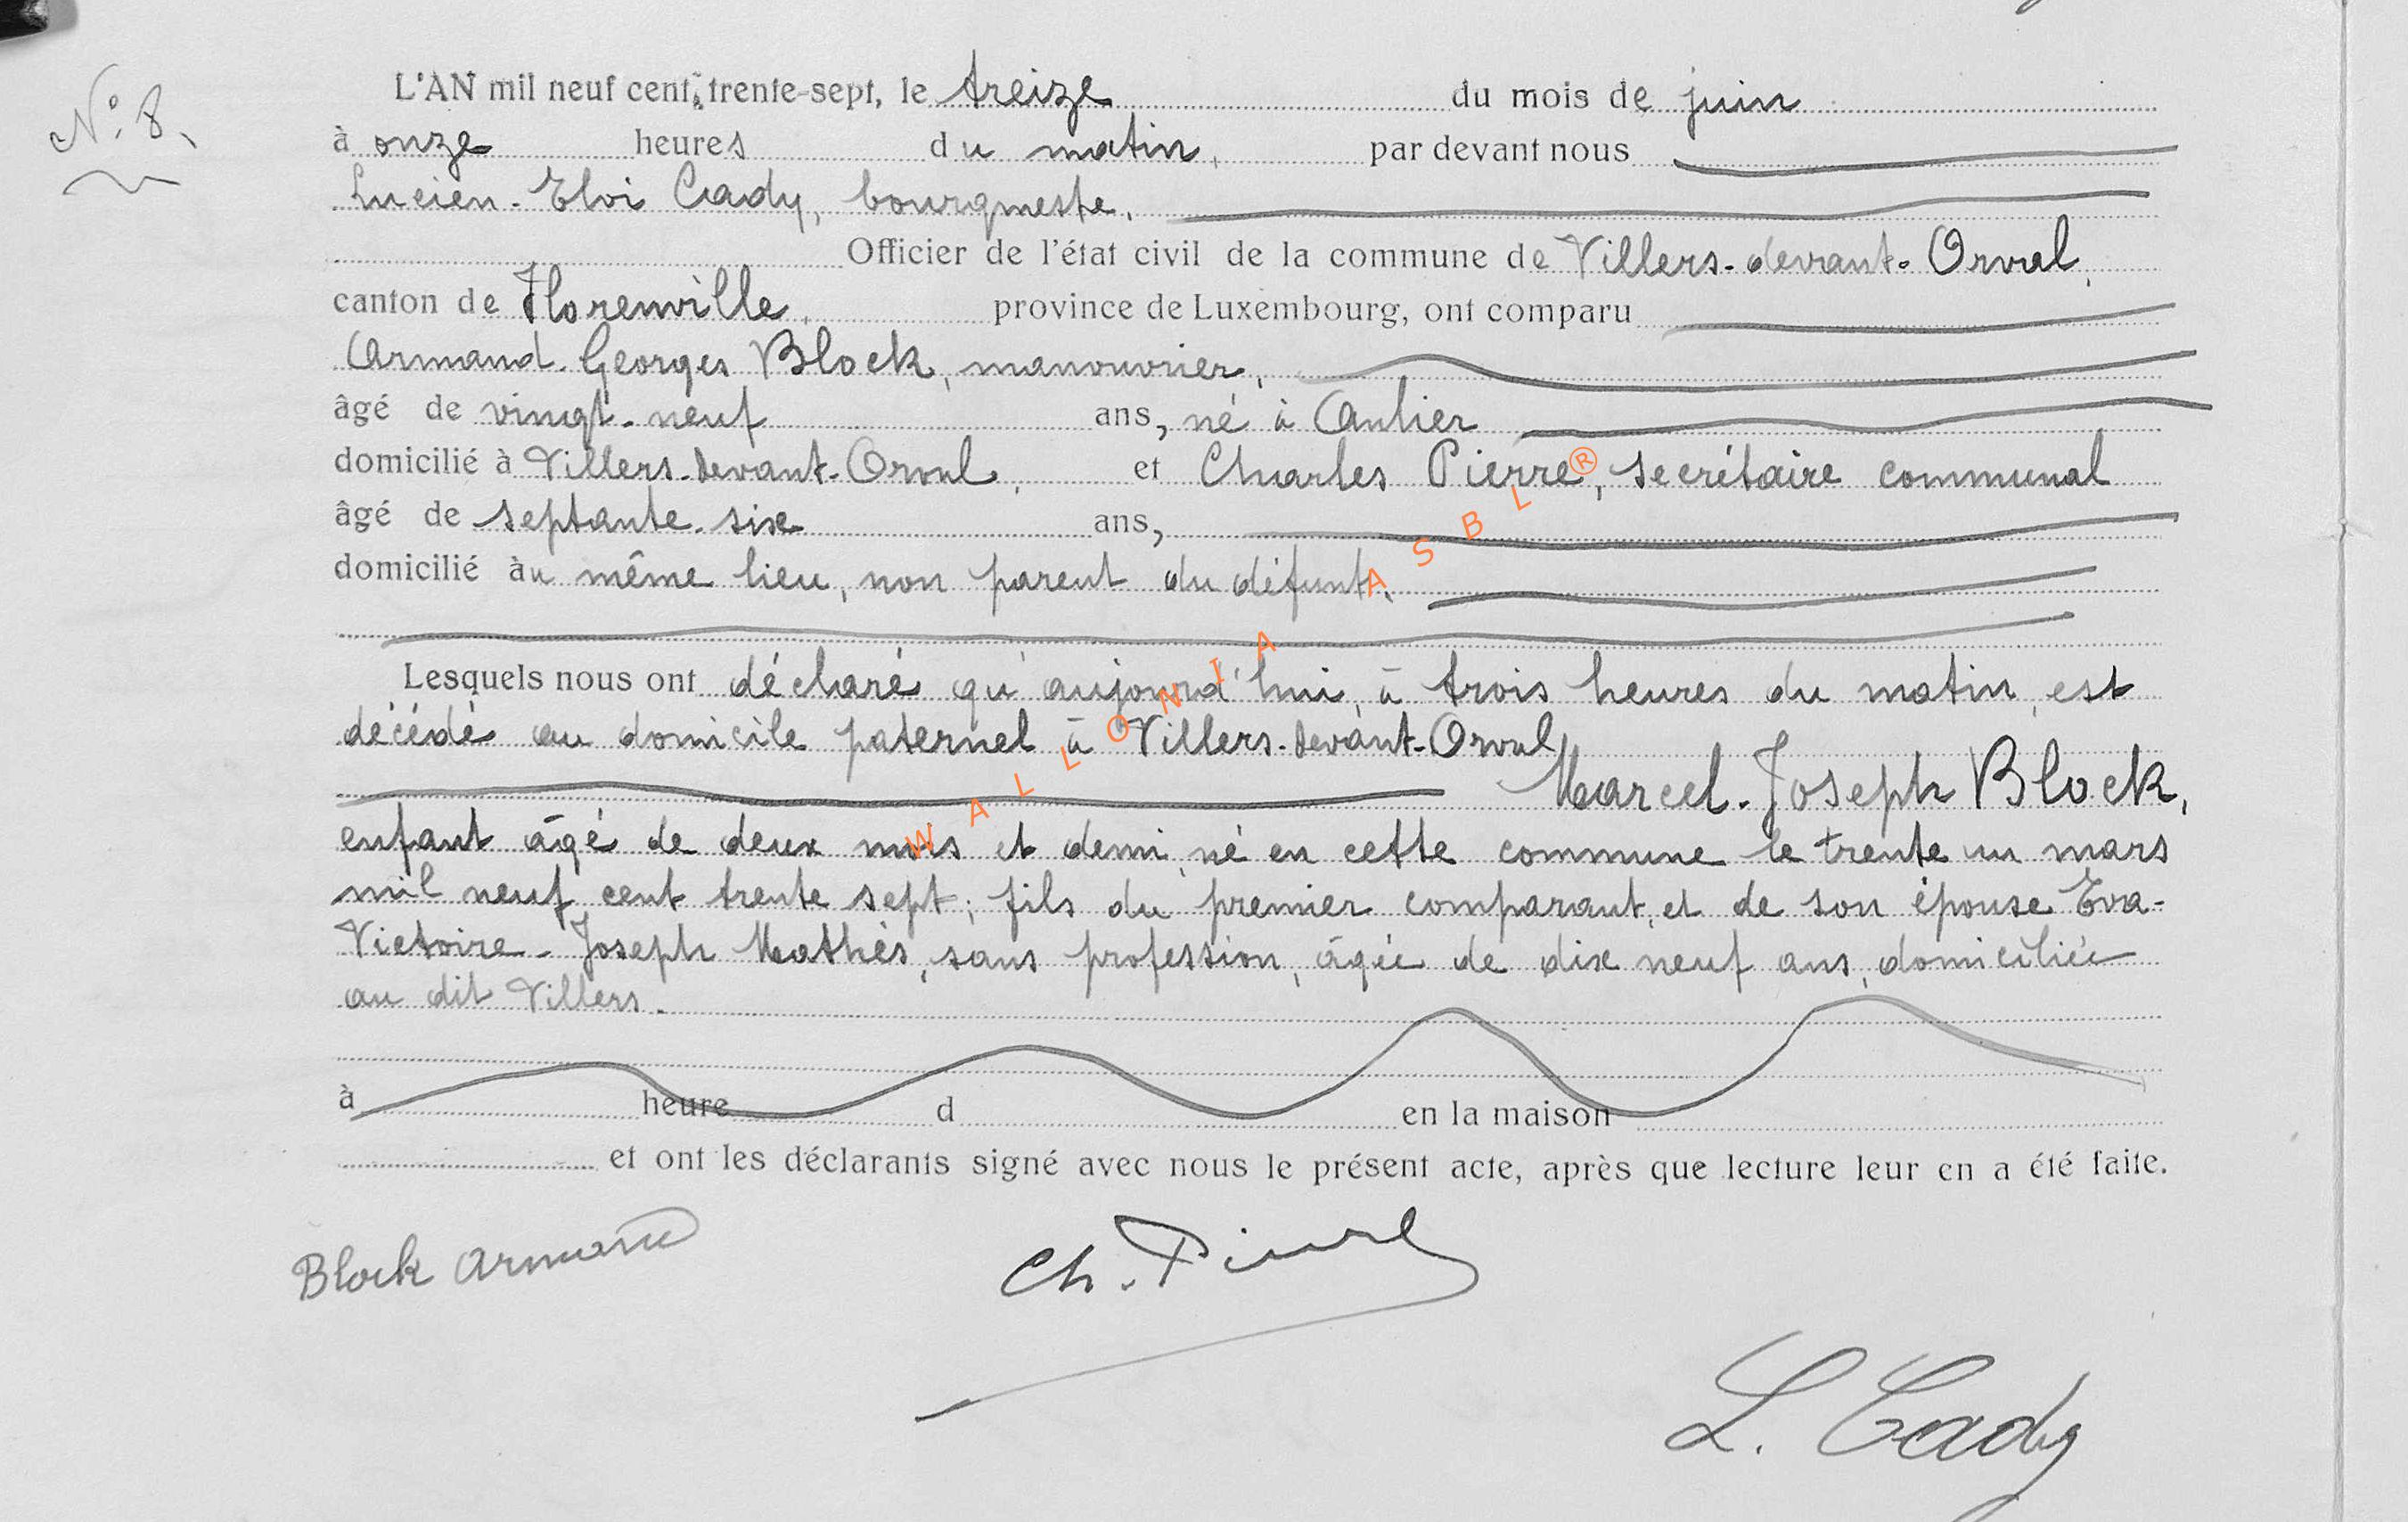 N° 8.
L'AN mil neuf cent trente-sept, le treize du mois de juin
à onze heures du matin, par devant nous
Lucien-Eloi Cady, bourgmestre,
Officier de l'état civil de la commune de Villers-devant-Orval,
canton de Florenville, province de Luxembourg, ont comparu
Armand-Georges Block, manouvrier,
âgé de vingt-neuf ans, né à Anlier
domicilié à Villers-devant-Orval, et Charles Pierre, secrétaire communal
âgé de septante-six ans,
domicilié au même lieu, non parent du défunt.
Lesquels nous ont déclaré qu'aujourd'hui, à trois heures du matin, est
décédé au domicile paternel à Villers-devant-Orval
Marcel-Joseph Block,
enfant âgé de deux mois et demi, né en cette commune le trente un mars
mil neuf cent trente sept; fils du premier comparant, et de son épouse Eva-
Victoire-Joseph Mathès, sans profession, âgée de dix neuf ans, domiciliée
au dit Villers.
à heure d en la maison
et ont les déclarants signé avec nous le présent acte, après que lecture leur en a été faite.
Block Armand
Ch. Pierre
L. Cady
WALLONIA ASBL ®